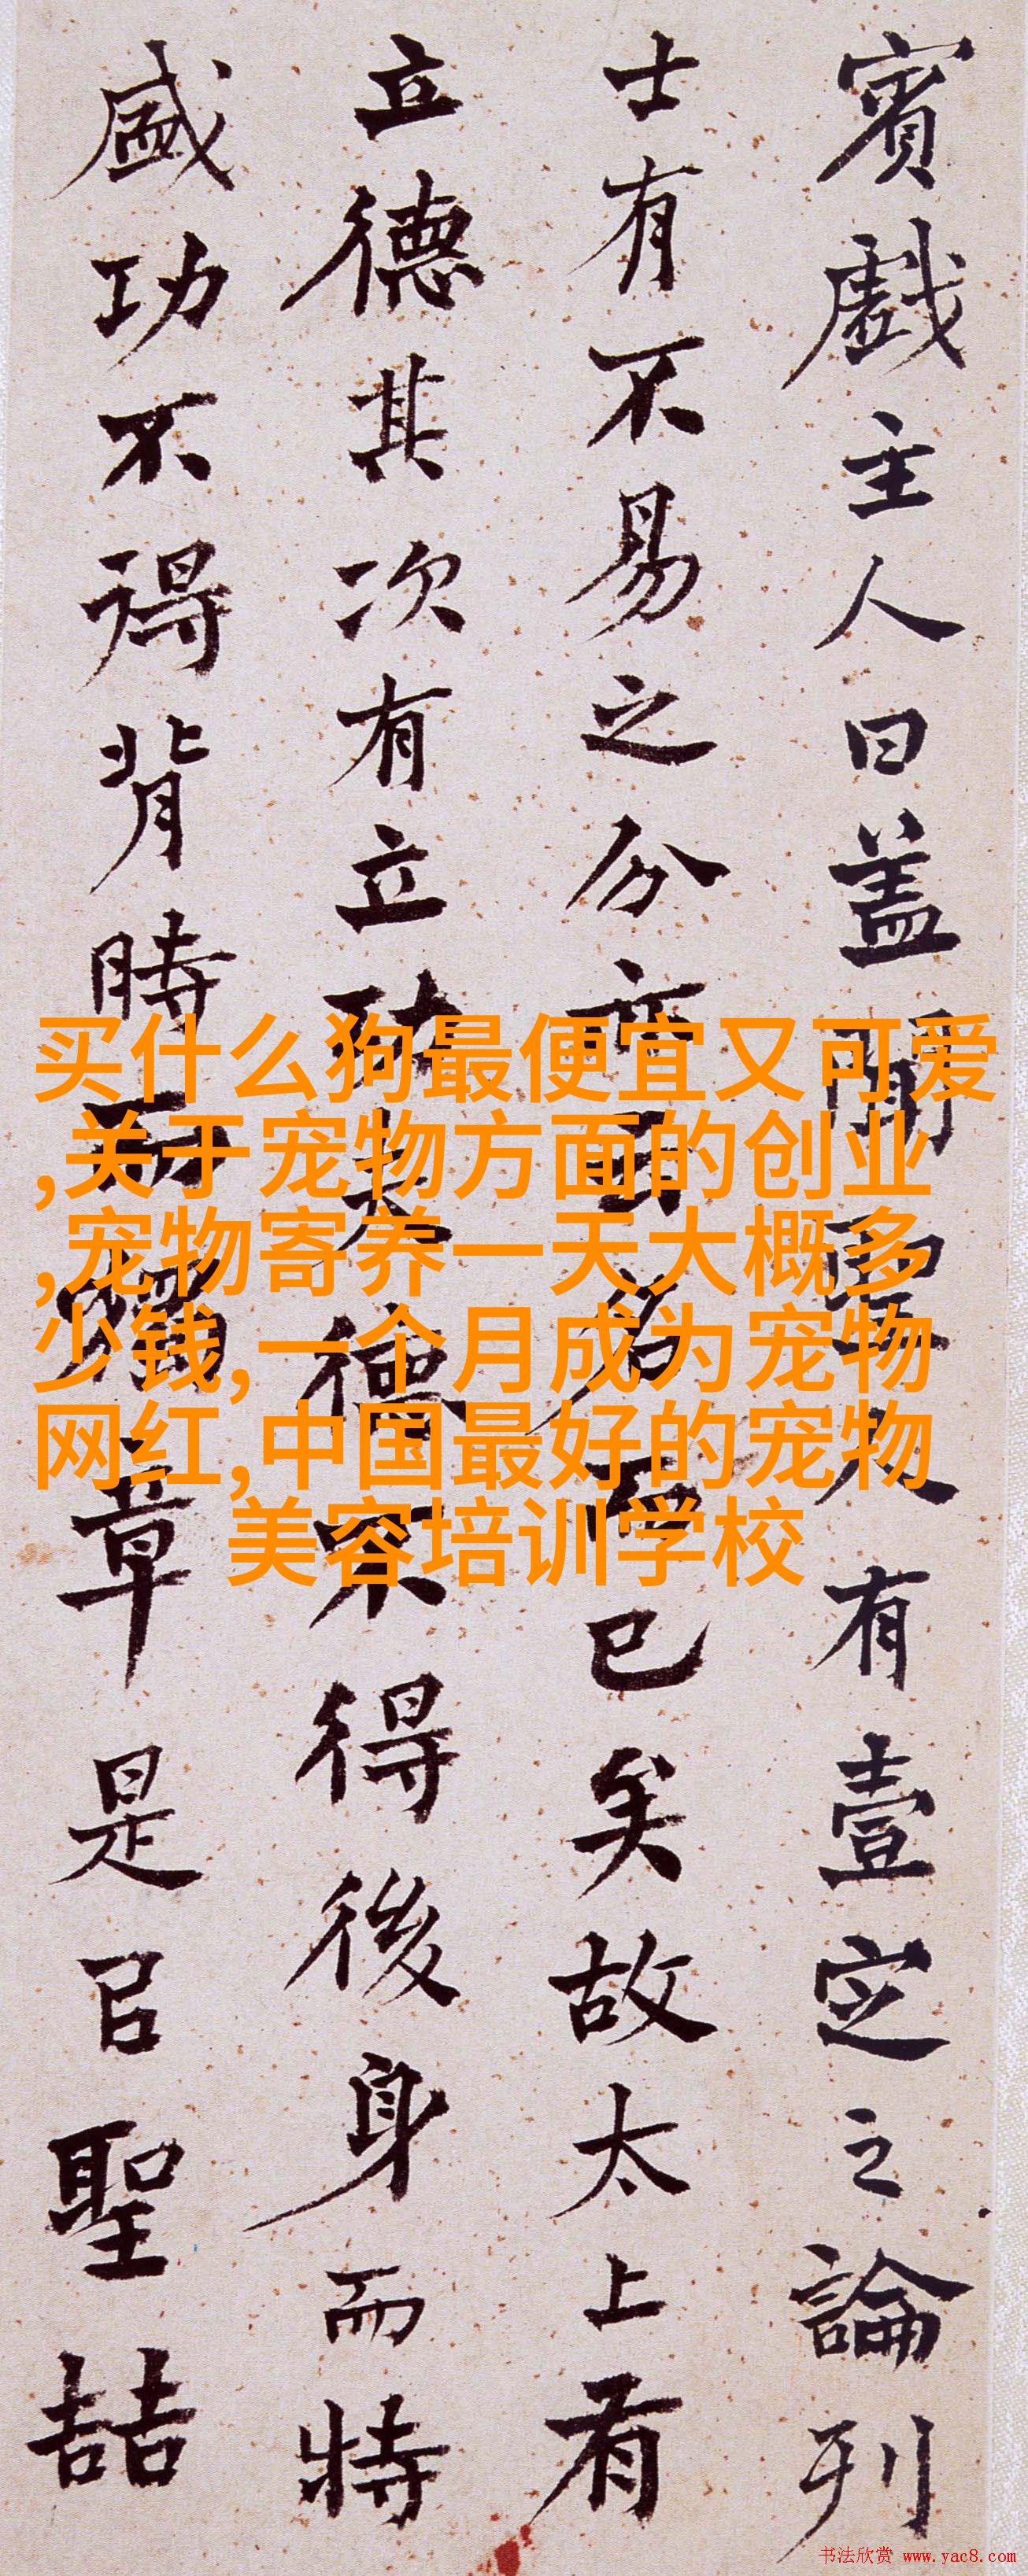 賓戲主人曰盖聞聖人有壹定之論列
士有不易之分亦云名而已矣故太上有
立德其次有立功夫德不得後身而特
盛功不得背時而獨章是㠯聖喆
买什么狗最便宜又可爱
,关于宠物方面的创业
,宠物寄养一天大概多
少钱,一个月成为宠物
网红,中国最好的宠物
美容培训学校
书法欣赏 www.yac8.com